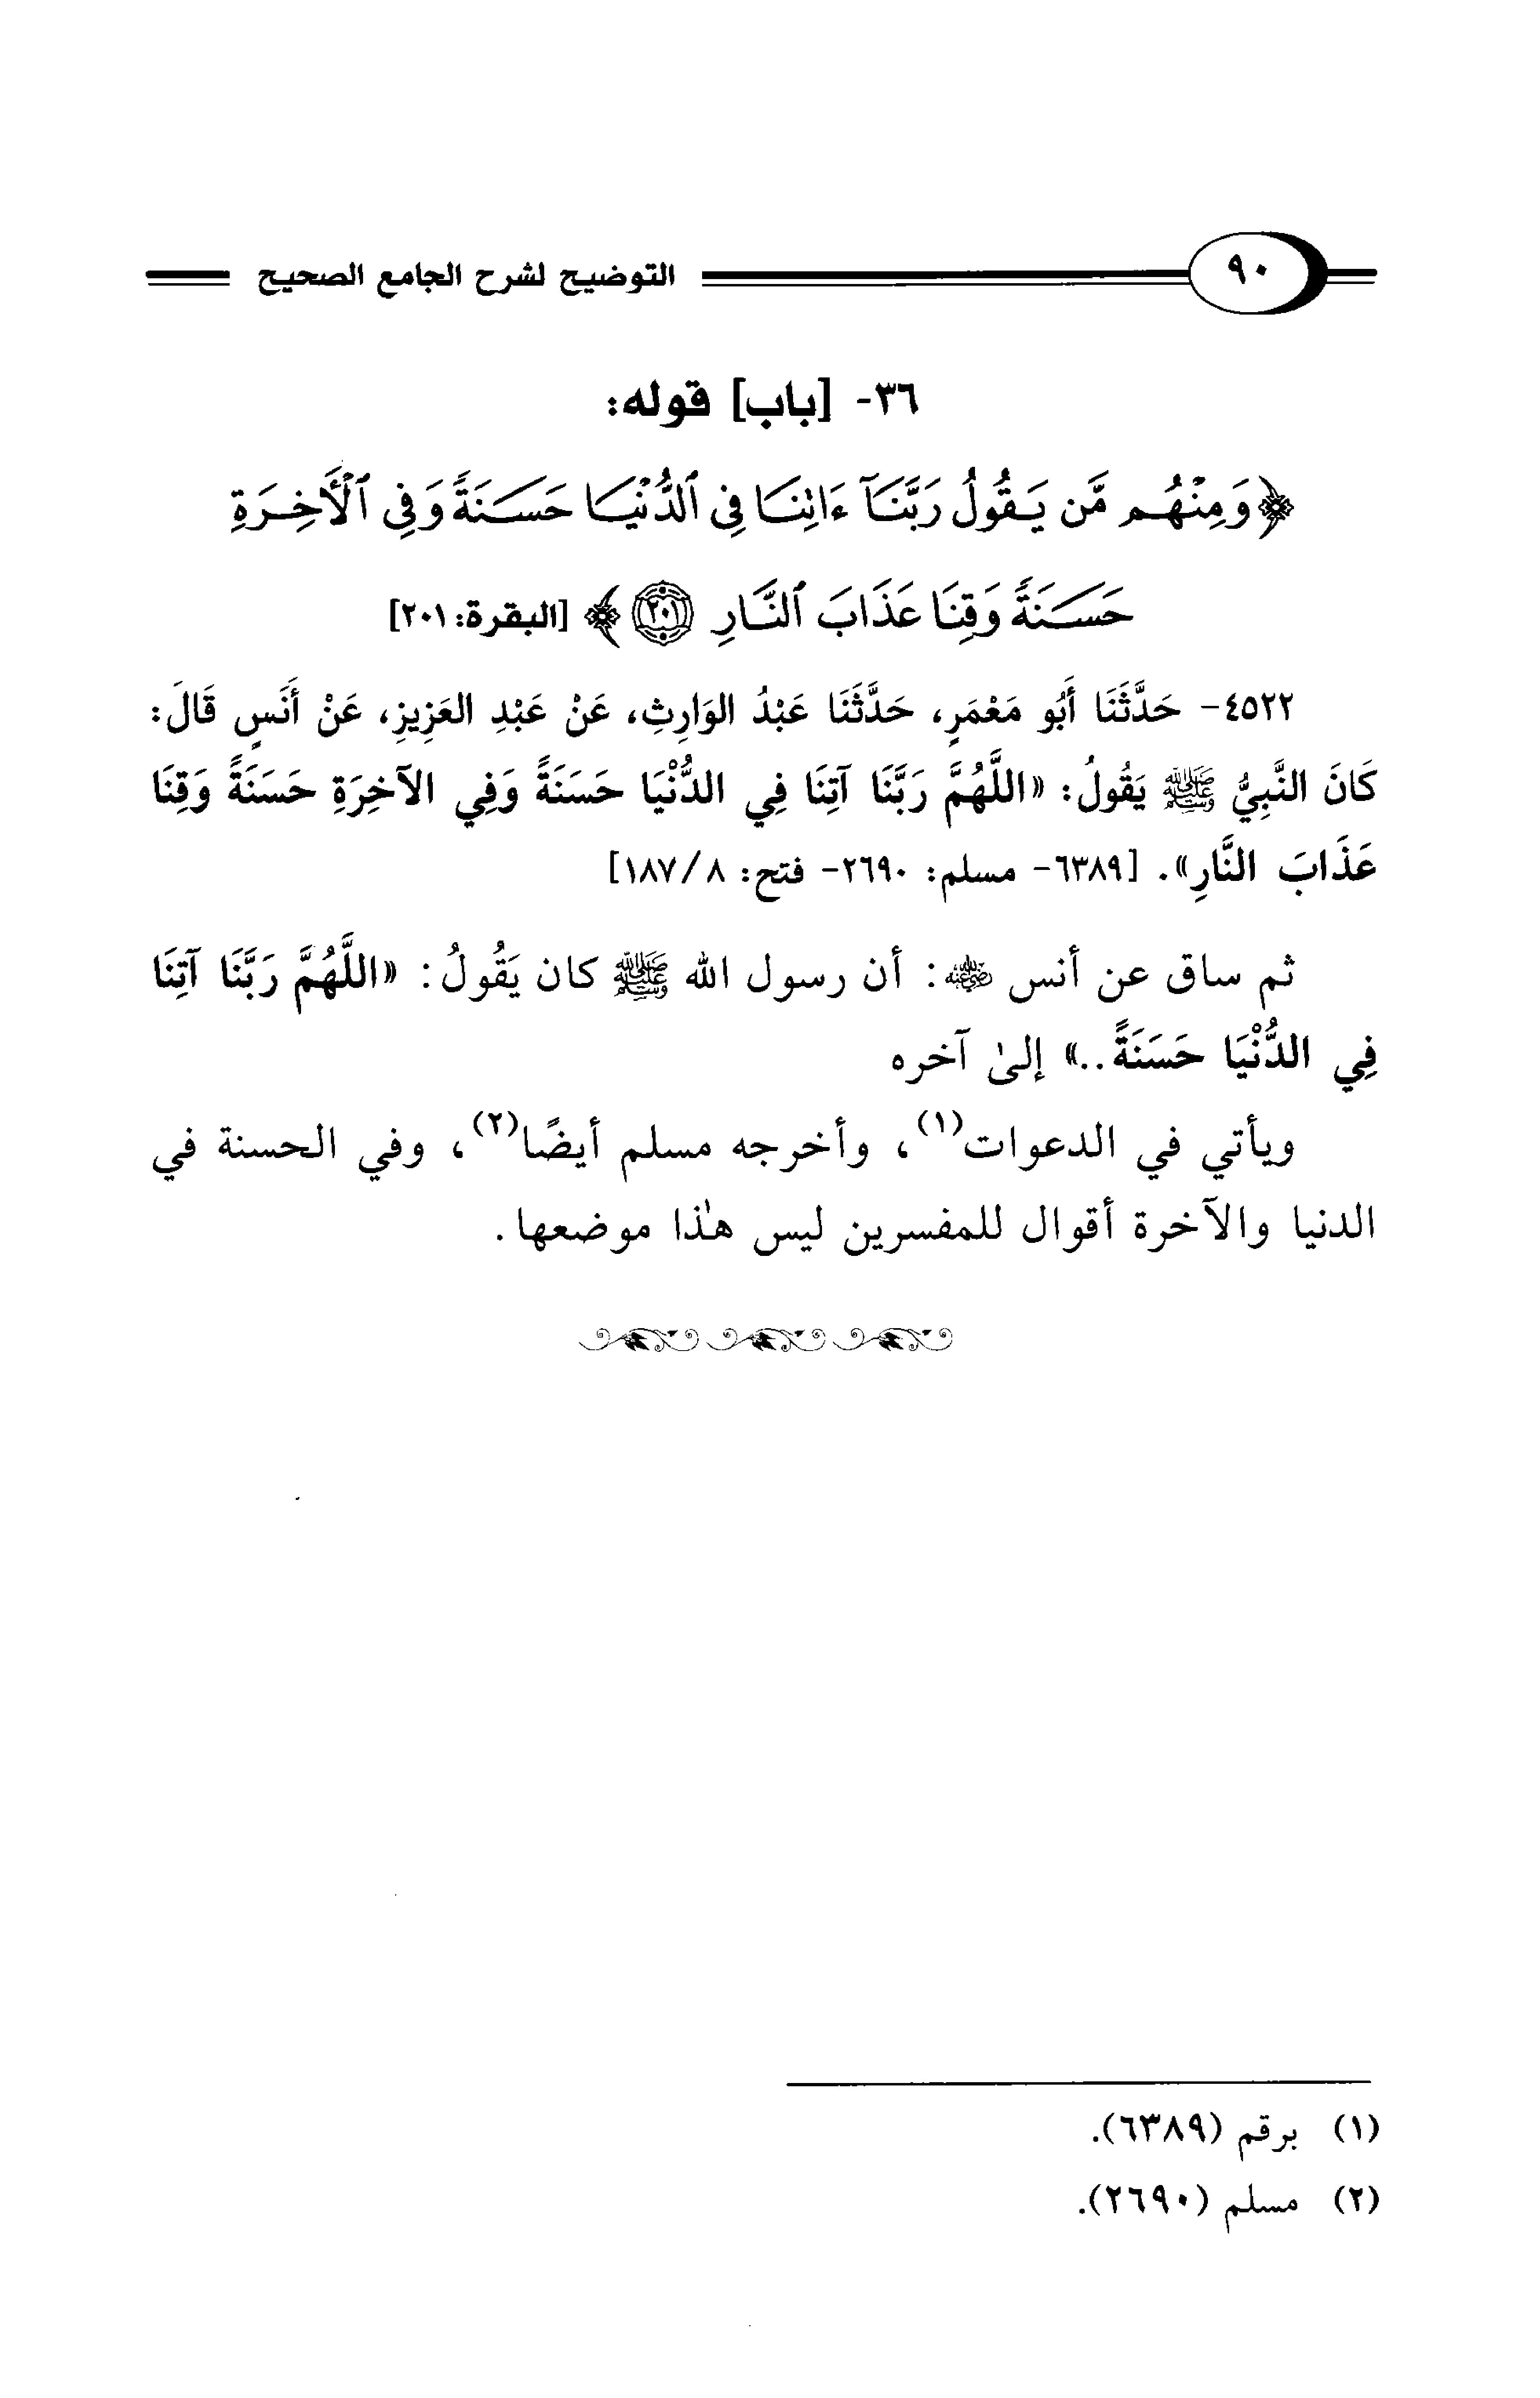 ٩٠
التوضيح لشرح الجامع الصحيح
٣٦- [باب] قوله:
﴿وَمِنْهُم مَّن يَقُولُ رَبَّنَآ ءَاتِنَا فِي ٱلدُّنْيَا حَسَنَةً وَفِي ٱلْأَخِرَةِ
حَسَنَةً وَقِنَا عَذَابَ ٱلنَّارِ ٢٠١﴾ [البقرة: ٢٠١]
٤٥٢٢- حَدَّثَنَا أَبُو مَعْمَرٍ، حَدَّثَنَا عَبْدُ الوَارِثِ، عَنْ عَبْدِ العَزِيزِ، عَنْ أَنَسٍ قَالَ:
كَانَ النَّبِيُّ ﷺ يَقُولُ: «اللَّهُمَّ رَبَّنَا آتِنَا فِي الدُّنْيَا حَسَنَةً وَفِي الآخِرَةِ حَسَنَةً وَقِنَا
عَذَابَ النَّارِ». [٦٣٨٩- مسلم: ٢٦٩٠- فتح: ٨/ ١٨٧]
ثم ساق عن أنس ﵁: أن رسول الله ﷺ كان يَقُولُ: «اللَّهُمَّ رَبَّنَا آتِنَا
فِي الدُّنْيَا حَسَنَةً..» إلىٰ آخره
ويأتي في الدعوات(١)، وأخرجه مسلم أيضًا(٢)، وفي الحسنة في
الدنيا والآخرة أقوال للمفسرين ليس هٰذا موضعها.
(١) برقم (٦٣٨٩).
(٢) مسلم (٢٦٩٠).